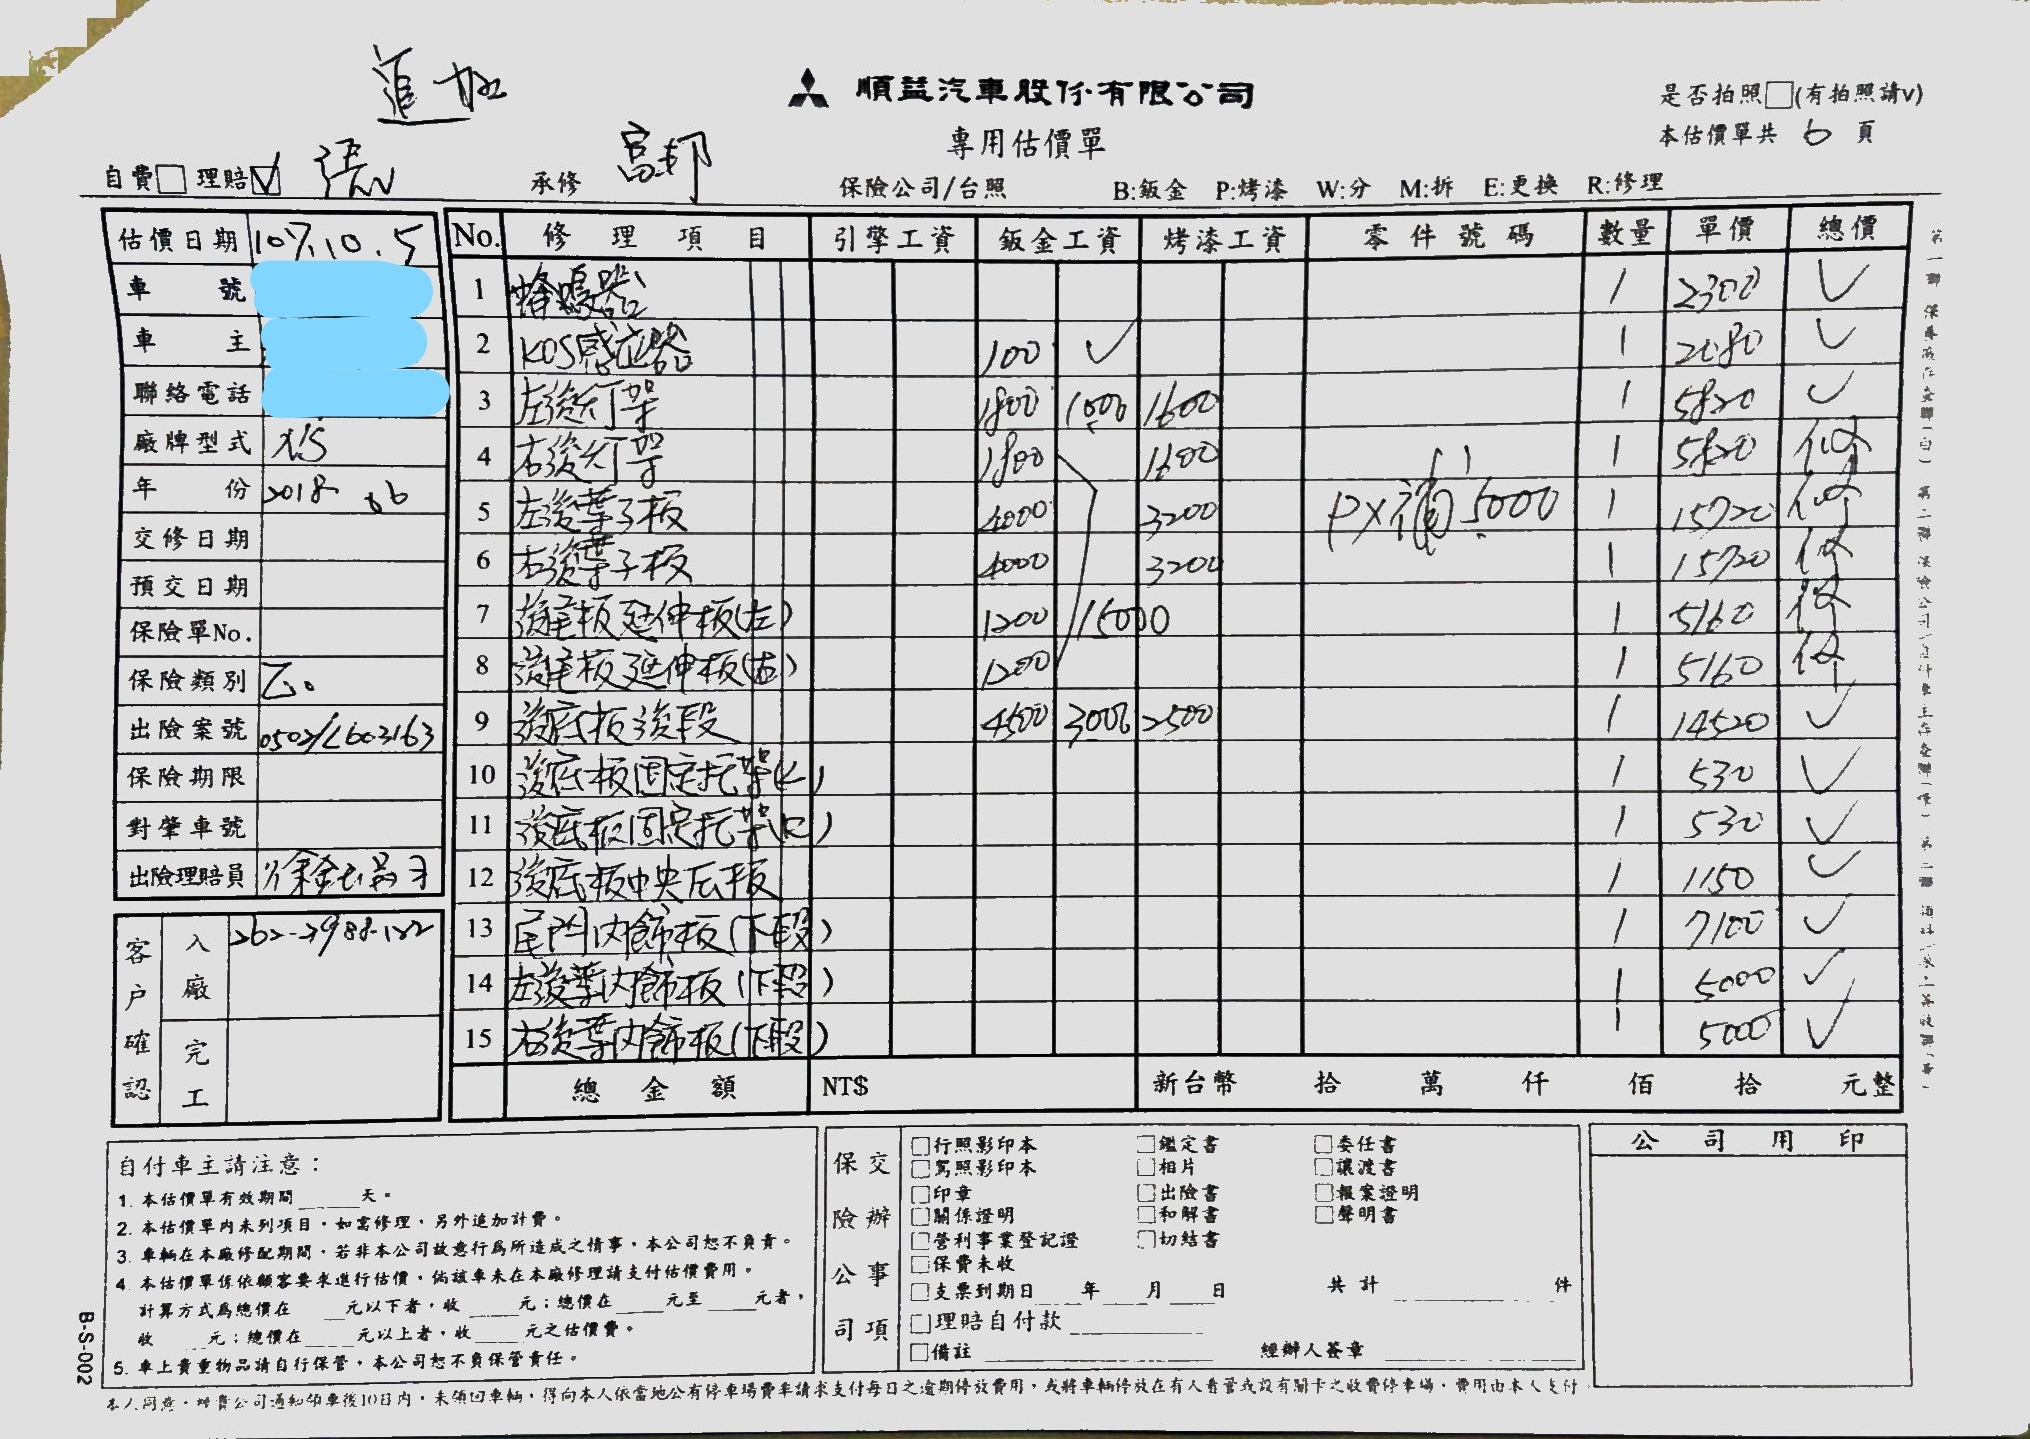 追加
順益汽車股份有限公司
專用估價單
是否拍照□(有拍照請v)
本估價單共 6 頁
自費□ 理賠☑ 張 承修 富邦 保險公司/台照 B:鈑金 P:烤漆 W:分 M:拆 E:更換 R:修理
估價日期 107.10.5
車號
車主
聯絡電話
廠牌型式
年份 2018 06
交修日期
預交日期
保險單No.
保險類別 乙
出險案號
保險期限
對肇車號
出險理賠員
客戶確認
入廠
完工
No. 修理項目 引擎工資 鈑金工資 烤漆工資 零件號碼 數量 單價 總價
1 蜂鳴器 1 2300 ✓
2 KOS感应器 100 ✓ 1 2080 ✓
3 左後灯架 1800 1000 1600 1 5820 ✓
4 右後灯架 1800 1600 1 5820 修
5 左後葉子板 4000 3200 PX補 5000 1 15720 修
6 右後葉子板 4000 3200 1 15720 修
7 後尾板延伸板(左) 1200 15000 1 5160 修
8 後尾板延伸板(右) 1200 1 5160 修
9 後底板後段 4500 3000 2500 1 14520 ✓
10 後底板固定托架(L) 1 530 ✓
11 後底板固定托架(R) 1 530 ✓
12 後底板中央底板 1 1150 ✓
13 尾門內飾板(下段) 1 7100 ✓
14 左後葉內飾板(下段) 1 5000 ✓
15 右後葉內飾板(下段) 1 5000 ✓
總金額 NT$ 新台幣 拾 萬 仟 佰 拾 元整
自付車主請注意：
1. 本估價單有效期間____天。
2. 本估價單內未列項目，如需修理，另外追加計費。
3. 車輛在本廠修配期間，若非本公司故意行為所造成之情事，本公司恕不負責。
4. 本估價單係依顧客要求進行估價，倘該車未在本廠修理請支付估價費用。
計算方式為總價在 __元以下者，收____元；總價在____元至____元者，
收____元；總價在____元以上者，收____元之估價費。
5. 車上貴重物品請自行保管，本公司恕不負保管責任。
保險公司
交辦事項
□行照影印本 □鑑定書 □委任書
□駕照影印本 □相片 □讓渡書
□印章 □出險書 □報案證明
□關係證明 □和解書 □聲明書
□營利事業登記證 □切結書
□保費未收
□支票到期日____年____月____日 共計________件
□理賠自付款________
□備註________ 經辦人簽章________
公司用印
B-S-002
本人同意，經貴公司通知領車後10日內，未領回車輛，得向本人依當地公有停車場費率請求支付每日之逾期停放費用，或將車輛停放在有人看管或設有關卡之收費停車場，費用由本人支付